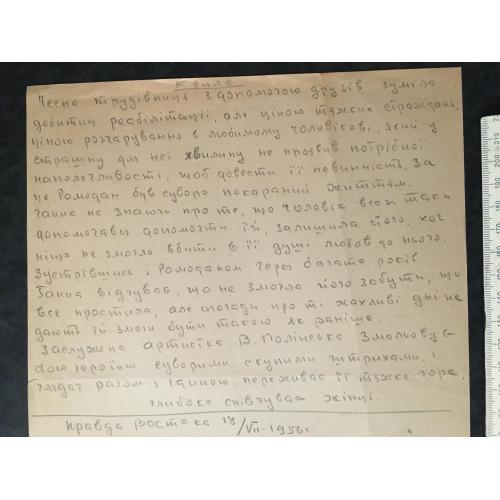 Крила
Чесна трудівниця з допомогою друзів зуміла
добитись реабілітації, але ціною тяжких страждань,
ціною розчарування в любимому чоловікові, який у
страшну для неї хвилину не проявив потрібної
наполегливості, щоб довести її невинність. За
це Ромодан був суворо покараний життям.
Ганна не знаючи про те, що чоловік все ж таки
допомагав допомогти їй, залишила його. хоч
ніщо не змогло вбити в її душі любов до нього.
Зустрівшись з Ромоданом через багато років
Ганна відчуває, що не змогла його забути, що
все простила, але спогади про ті жахливі дні не
дають їй змоги бути такою як раніше.
Заслужена артистка В. Полінська змальовує
свою героїню суворими скупими штрихами, і
глядач разом з Ганною переживає її тяжке горе,
глибоко співчуває жінці.
Правда Востока 18/VII-1956 г.
"